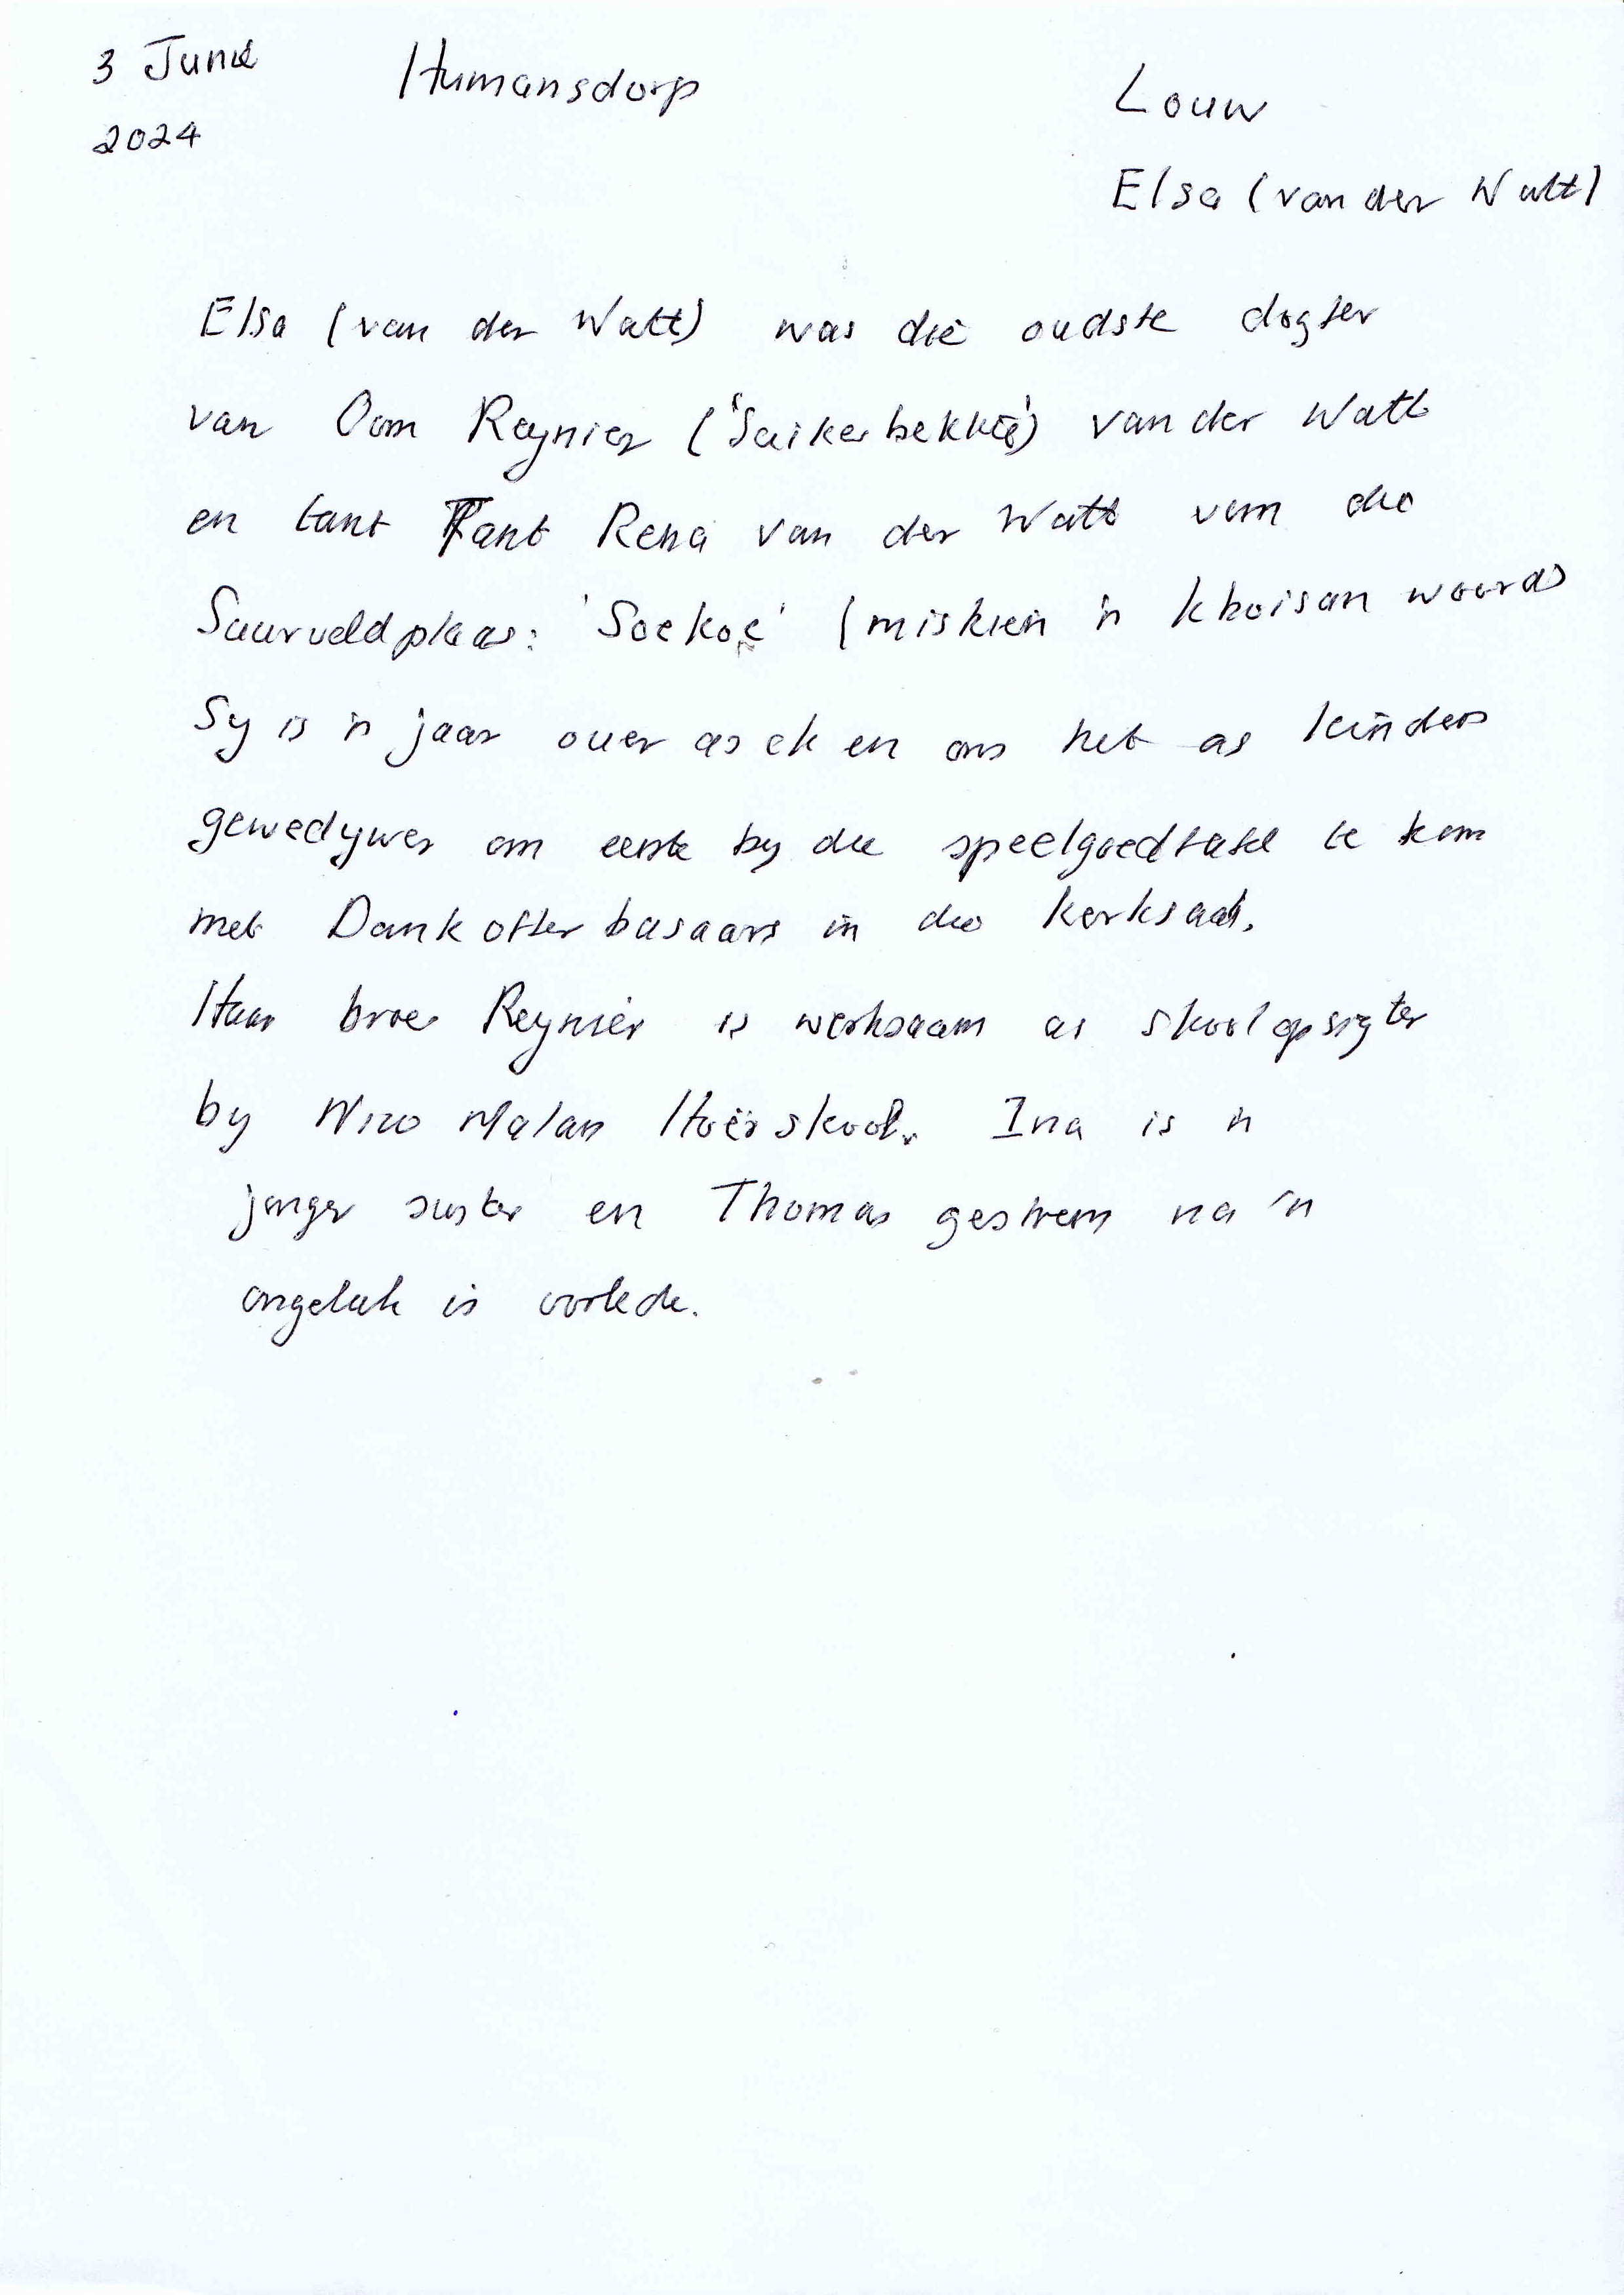 3 June Humansdorp Louw
2024
Elsa (van der Watt)
Elsa (van der Watt) was die oudste dogter
van Oom Reynier ('Suikerbekkie') van der Watt
en tant Tant Rena van der Watt van die
Suurveldplaas: 'Soekoe' (miskien 'n khoisan woord)
Sy is 'n jaar ouer as ek en ons het as kinders
gewedywer om eerste by die speelgoedtafel te kom
met Dankofferbasaars in die kerksaal.
Haar broer Reynier is werksaam as skoolopsigter
by Nico Malan Hoërskool. Ina is 'n
jonger suster en Thomas gestrem na 'n
ongeluk is oorlede.